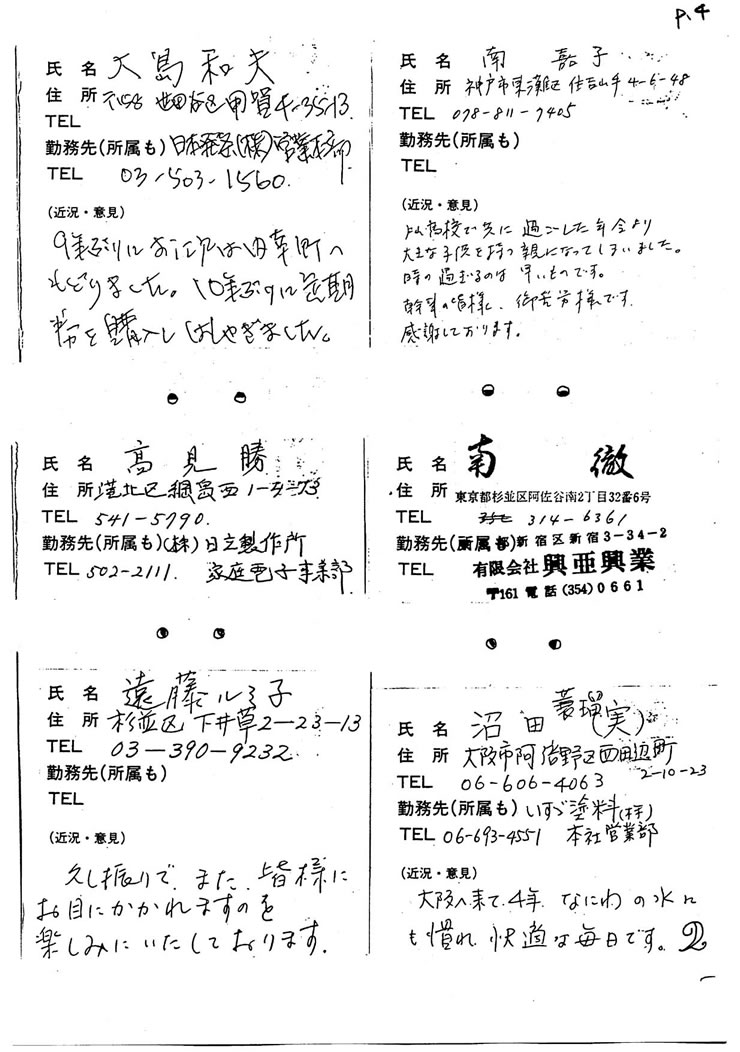 P.4
氏 名 大島和夫
住 所 〒158 世田谷区用賀4-35-13
TEL
勤務先(所属も) 日本発条(株)営業本部
TEL 03-503-1560.
(近況・意見)
9年ぶりに お江戸は内幸町へ
もどりました。10年ぶりに定期
券を購入し はしゃぎました。
氏 名 南 嘉子
住 所 神戸市東灘区 住吉山手4-6-48
TEL 078-811-7405
勤務先(所属も)
TEL
(近況・意見)
高校で共に 過ごした年令より
大きな子供を持つ親になってしまいました。
時の過ぎるのは 早いものです。
幹事の皆様、御苦労様です。
感謝しております。
氏 名 高見 勝
住 所 港北区綱島西1-
TEL 541-5790.
勤務先(所属も)(株)日立製作所
TEL 502-2111. 家庭電子事業部
氏 名 南 徹
住 所 東京都杉並区阿佐谷南2丁目32番6号
TEL 314-6361
勤務先(所属部) 新宿区新宿3-34-2
TEL 有限会社 興亜興業
〒161 電話(354)0661
氏 名 遠藤ルミ子
住 所 杉並区下井草2-23-13
TEL 03-390-9232
勤務先(所属も)
TEL
(近況・意見)
久し振りで、また、皆様に
お目にかかれますのを
楽しみにいたしております.
氏 名 沼田 (実)
住 所 大阪市阿倍野区西田辺町
2-10-23
TEL 06-606-4063
勤務先(所属も) いすゞ塗料(株)
TEL 06-693-4551 本社営業部
(近況・意見)
大阪へ来て、4年. なにわの水に
も慣れ 快適な毎日です。